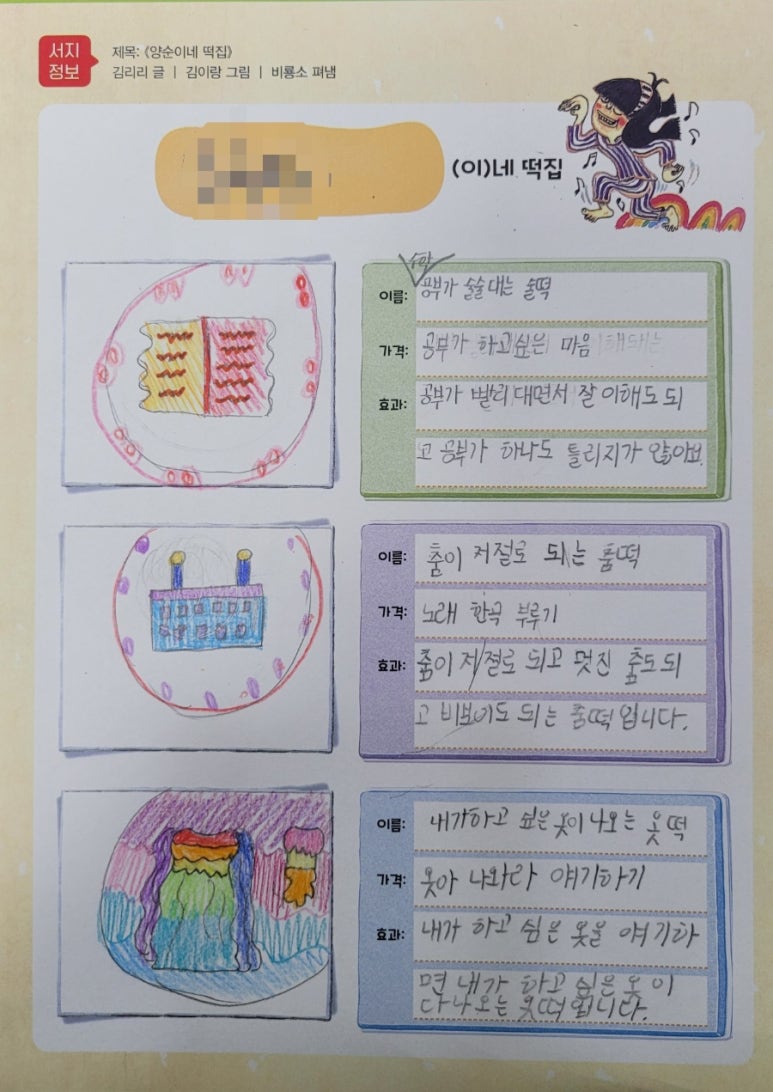 서지
정보
제목: 《양순이네 떡집》
김리리 글 | 김이랑 그림 | 비룡소 펴냄
(이)네 떡집
수학
이름: 공부가 술술대는 술떡
가격: 공부가 하고싶은 마음
효과: 공부가 빨리대면서 잘 이해도 되
고 공부가 하나도 틀리지가 않아요.
이름: 춤이 저절로 되는 춤떡
가격: 노래 한곡 부루기
효과: 춤이 저절로 되고 멋진 춤도 되
고 비보이도 되는 춤떡입니다.
이름: 내가하고 싶은 옷이 나오는 옷떡
가격: 옷아 나와라 얘기하기
효과: 내가 하고 싶은 옷을 얘기하
면 내가 하고 싶은 옷이
다나오는 옷떡입니다.